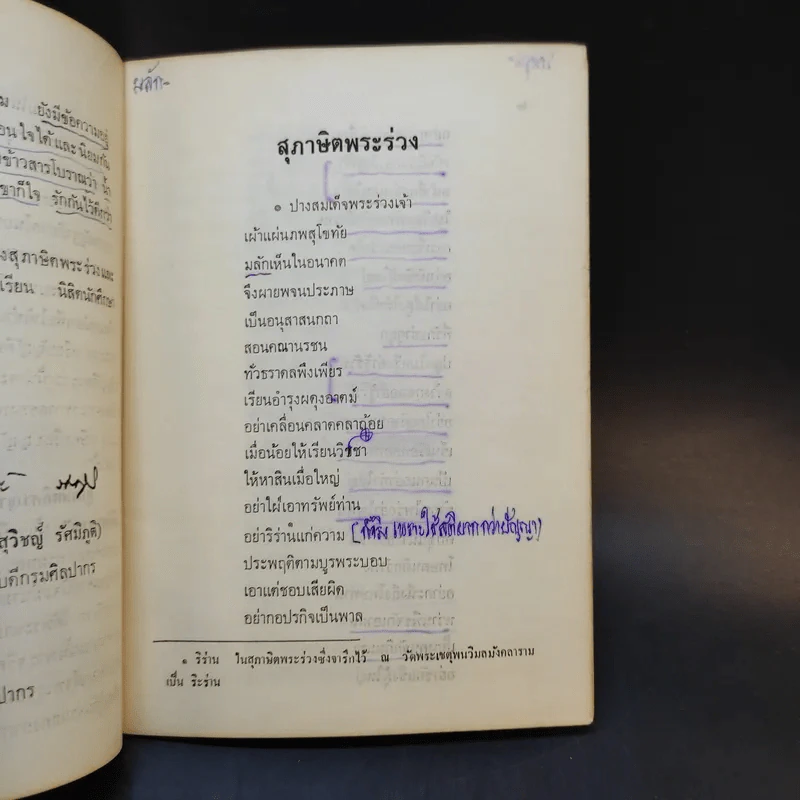 ยังมีข้อความอยู่
อนใจได้ และนิยมกัน
ข้าวสารโบราณว่า น้ำ
ขาก็ใจ รักกันไว้ดีกว่า
งสุภาษิตพระร่วงและ
เรียน นิสิตนักศึกษา
สุวิชญ์ รัศมิภูติ)
บดีกรมศิลปากร
ปากร
มลัก-
สุภาษิตพระร่วง
๑ ปางสมเด็จพระร่วงเจ้า
เผ้าแผ่นภพสุโขทัย
มลักเห็นในอนาคต
จึงผายพจนประภาษ
เป็นอนุสาสนกถา
สอนคณานรชน
ทั่วธราดลพึงเพียร
เรียนอำรุงผดุงอาตม์
อย่าเคลื่อนคลาดคลาถ้อย
เมื่อน้อยให้เรียนวิชชา
ให้หาสินเมื่อใหญ่
อย่าใฝ่เอาทรัพย์ท่าน
อย่าริร่านแก่ความ
ประพฤติตามบูรพระบอบ
เอาแต่ชอบเสียผิด
อย่ากอปรกิจเป็นพาล
๑ ริร่าน ในสุภาษิตพระร่วงซึ่งจารึกไว้ ณ วัดพระเชตุพนวิมลมังคลาราม
เป็น ริะร่าน